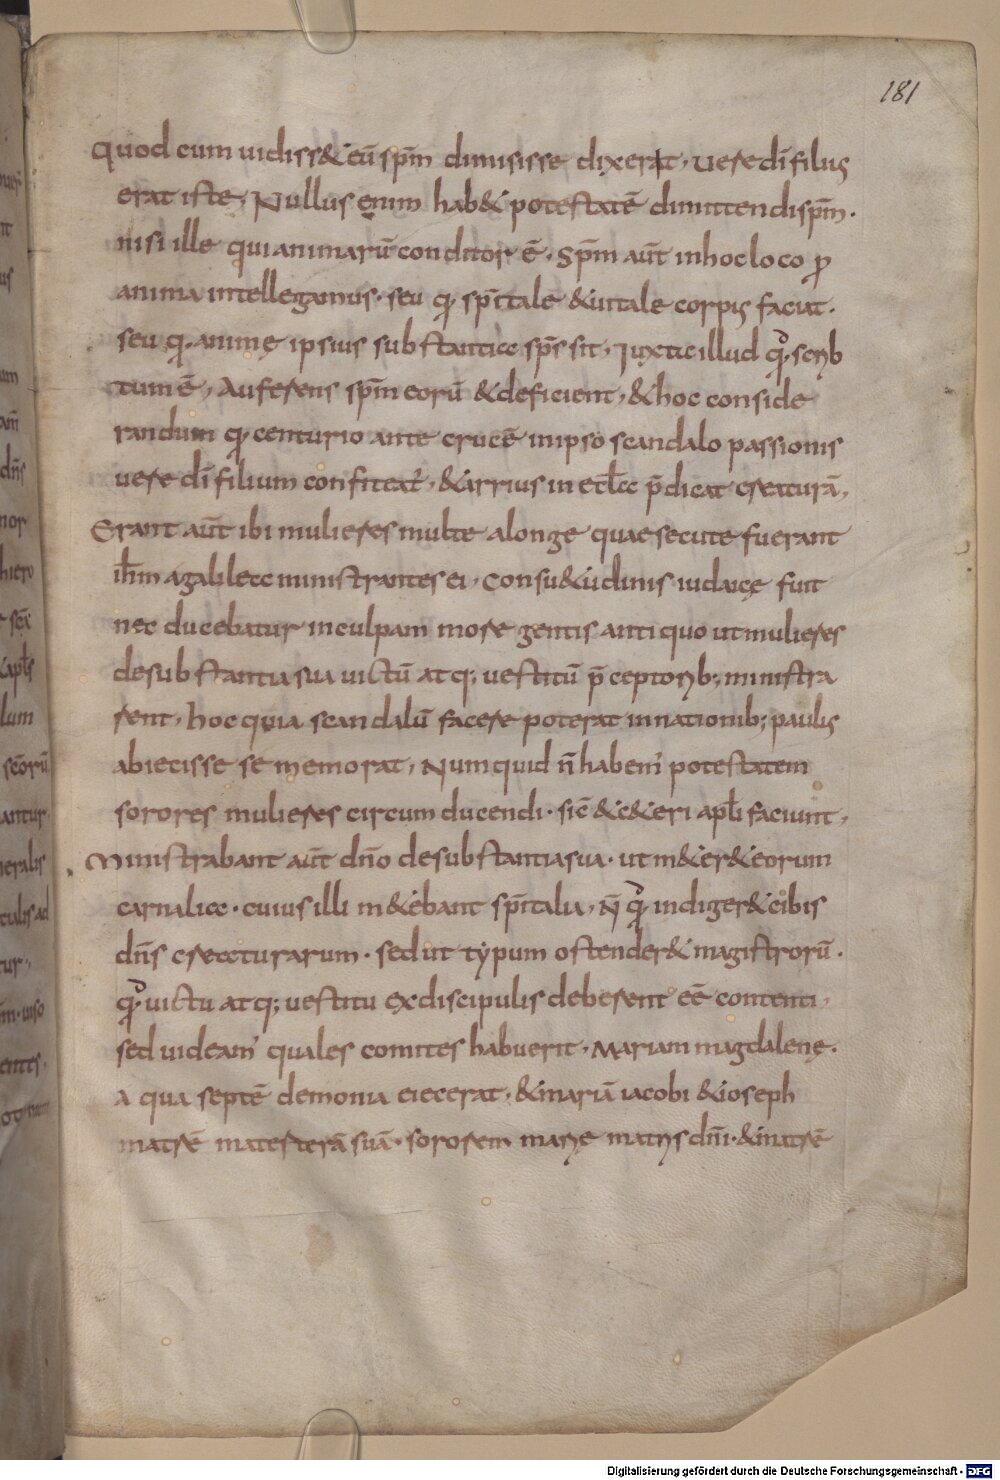 181
Quod cum uidiss& eū sp̄m dimisisse dixerat, uere dī filius
erat iste, Nullus enim hab& potestatē dimittendi sp̄m.
nisi ille qui animarū conditor ē. Sp̄m aūt in hoc loco ꝓ
anima intellegamus. seu ꝙ sp̄itale & uitale corpus faciat.
seu ꝙ animę ipsius substantia sp̄s sit, Iuxta illud qđ scrib
tum ē, Auferens sp̄m eorū & deficient, & hoc conside
randum ꝙ centurio ante crucē in ipso scandalo passionis
uere dī filium confiteat᷑, & arrius in eccl̄a p̄dicat creaturā,
Erant aūt ibi mulieres multe a longe quae secute fuerant
ih̄m a galilea ministrantes ei, Consu&udinis iudaicę fuit
nec ducebatur in culpam more gentis antiquo ut mulieres
de substantia sua uictū atq; uestitū p̄ceptorib; ministra
rent, hoc quia scandalū facere poterat in nationib; paulus
abiecisse se memorat, Numquid n̄ habem᾽ potestatem
sorores mulieres circum ducendi. sic̄ & c&eri apl̄i faciunt,
Ministrabant aūt dn̄o de substantia sua. ut m&er& eorum
carnalia. cuius illi m&ebant sp̄italia, N̄ qđ indiger& cibis
dn̄s creaturarum. sed ut typum ostender& magistrorū.
qđ uictu atq; uestitu ex discipulis deberent eē contenti,
sed uideam᾽ quales comites habuerit, Mariam magdalenę.
a qua septē demonia eiecerat, & mariā iacobi & ioseph
matrē materterā suā. sororem marię matris dn̄i. & matrē
Digitalisierung gefördert durch die Deutsche Forschungsgemeinschaft - DFG